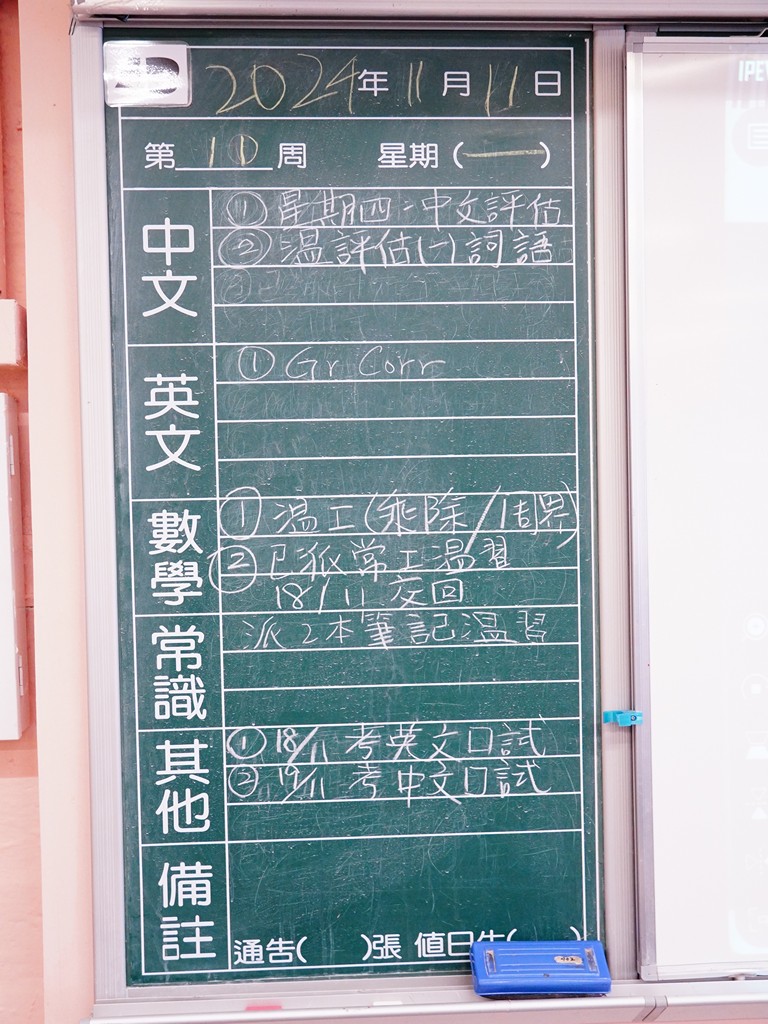 2024年11月11日
第11周 星期(一)
中文
① 星期四:中文評估
② 温評估(一)詞語
英文
① Gr Corr
數學
① 温工(乘除/周界)
② 已派常工温習
18/11 交回
常識
派2本筆記溫習
其他
① 18/11 考英文口試
② 19/11 考中文口試
備註
通告( )張 值日生( )
IPEV